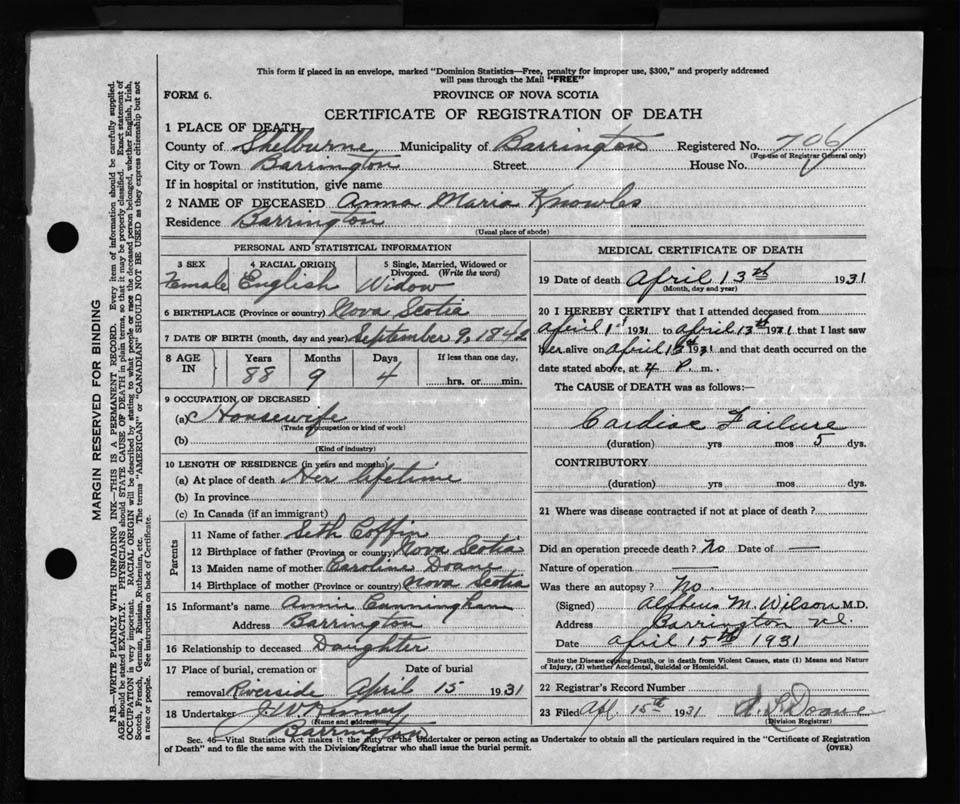 This form if placed in an envelope, marked "Dominion Statistics—Free, penalty for improper use, $300," and properly addressed
will pass through the Mail "FREE"
FORM 6.
PROVINCE OF NOVA SCOTIA
CERTIFICATE OF REGISTRATION OF DEATH
1 PLACE OF DEATH
County of Shelburne Municipality of Barrington Registered No. 706
(For use of Registrar General only)
City or Town Barrington Street House No.
If in hospital or institution, give name
2 NAME OF DECEASED Anna Maria Knowles
Residence Barrington
(Usual place of abode)
PERSONAL AND STATISTICAL INFORMATION
3 SEX 4 RACIAL ORIGIN 5 Single, Married, Widowed or
Divorced. (Write the word)
Female English Widow
6 BIRTHPLACE (Province or country) Nova Scotia
7 DATE OF BIRTH (month, day and year) September 9, 1842
8 AGE IN Years Months Days If less than one day,
88 9 4 hrs. or min.
9 OCCUPATION OF DECEASED
(a) Housewife
(Trade, occupation or kind of work)
(b)
(Kind of industry)
10 LENGTH OF RESIDENCE (in years and months)
(a) At place of death Her lifetime
(b) In province
(c) In Canada (if an immigrant)
Parents
11 Name of father Seth Coffin
12 Birthplace of father (Province or country) Nova Scotia
13 Maiden name of mother Caroline Doane
14 Birthplace of mother (Province or country) Nova Scotia
15 Informant's name Annie Cunningham
Address Barrington
16 Relationship to deceased Daughter
17 Place of burial, cremation or Date of burial
removal Riverside April 15 1931
18 Undertaker J. W. Kenney
(Name and address)
Barrington
MEDICAL CERTIFICATE OF DEATH
19 Date of death April 13th 1931
(Month, day and year)
20 I HEREBY CERTIFY that I attended deceased from
April 1st 1931 to April 13th 1931 that I last saw
her alive on April 13th 1931 and that death occurred on the
date stated above, at 4 P. m.
The CAUSE of DEATH was as follows:—
Cardiac Failure
(duration) yrs mos 5 dys.
CONTRIBUTORY
(duration) yrs mos dys.
21 Where was disease contracted if not at place of death?
Did an operation precede death? No Date of —
Nature of operation —
Was there an autopsy? No.
(Signed) Alpheus M. Wilson M.D.
Address Barrington N.S.
Date April 15th 1931
State the Disease causing Death, or in death from Violent Causes, state (1) Means and Nature
of Injury, (2) whether Accidental, Suicidal or Homicidal.
22 Registrar's Record Number
23 Filed Apl. 15th 1931 Doane
(Division Registrar)
Sec. 46—Vital Statistics Act makes it the duty of the Undertaker or person acting as Undertaker to obtain all the particulars required in the "Certificate of Registration
of Death" and to file the same with the Division Registrar who shall issue the burial permit.
(OVER)
MARGIN RESERVED FOR BINDING
N.B.—WRITE PLAINLY WITH UNFADING INK—THIS IS A PERMANENT RECORD. Every item of information should be carefully supplied.
AGE should be stated EXACTLY. PHYSICIANS should STATE CAUSE OF DEATH in plain terms, so that it may be properly classified. Exact statement of
OCCUPATION is very important. RACIAL ORIGIN will be described by stating to what people or race the deceased person belonged, whether English, Irish,
Scotch, French, German, Russian, Ruthenian, etc. The terms "AMERICAN" or "CANADIAN" SHOULD NOT BE USED as they express citizenship but not
a race or people. See instructions on back of Certificate.